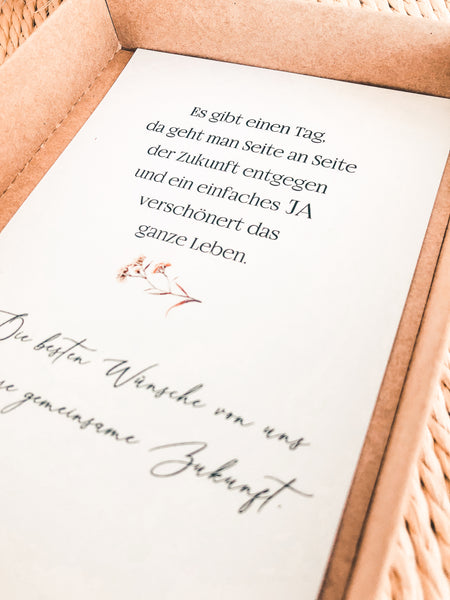 Es gibt einen Tag,
da geht man Seite an Seite
der Zukunft entgegen
und ein einfaches JA
verschönert das
ganze Leben.
Die besten Wünsche von uns
gemeinsame Zukunft.